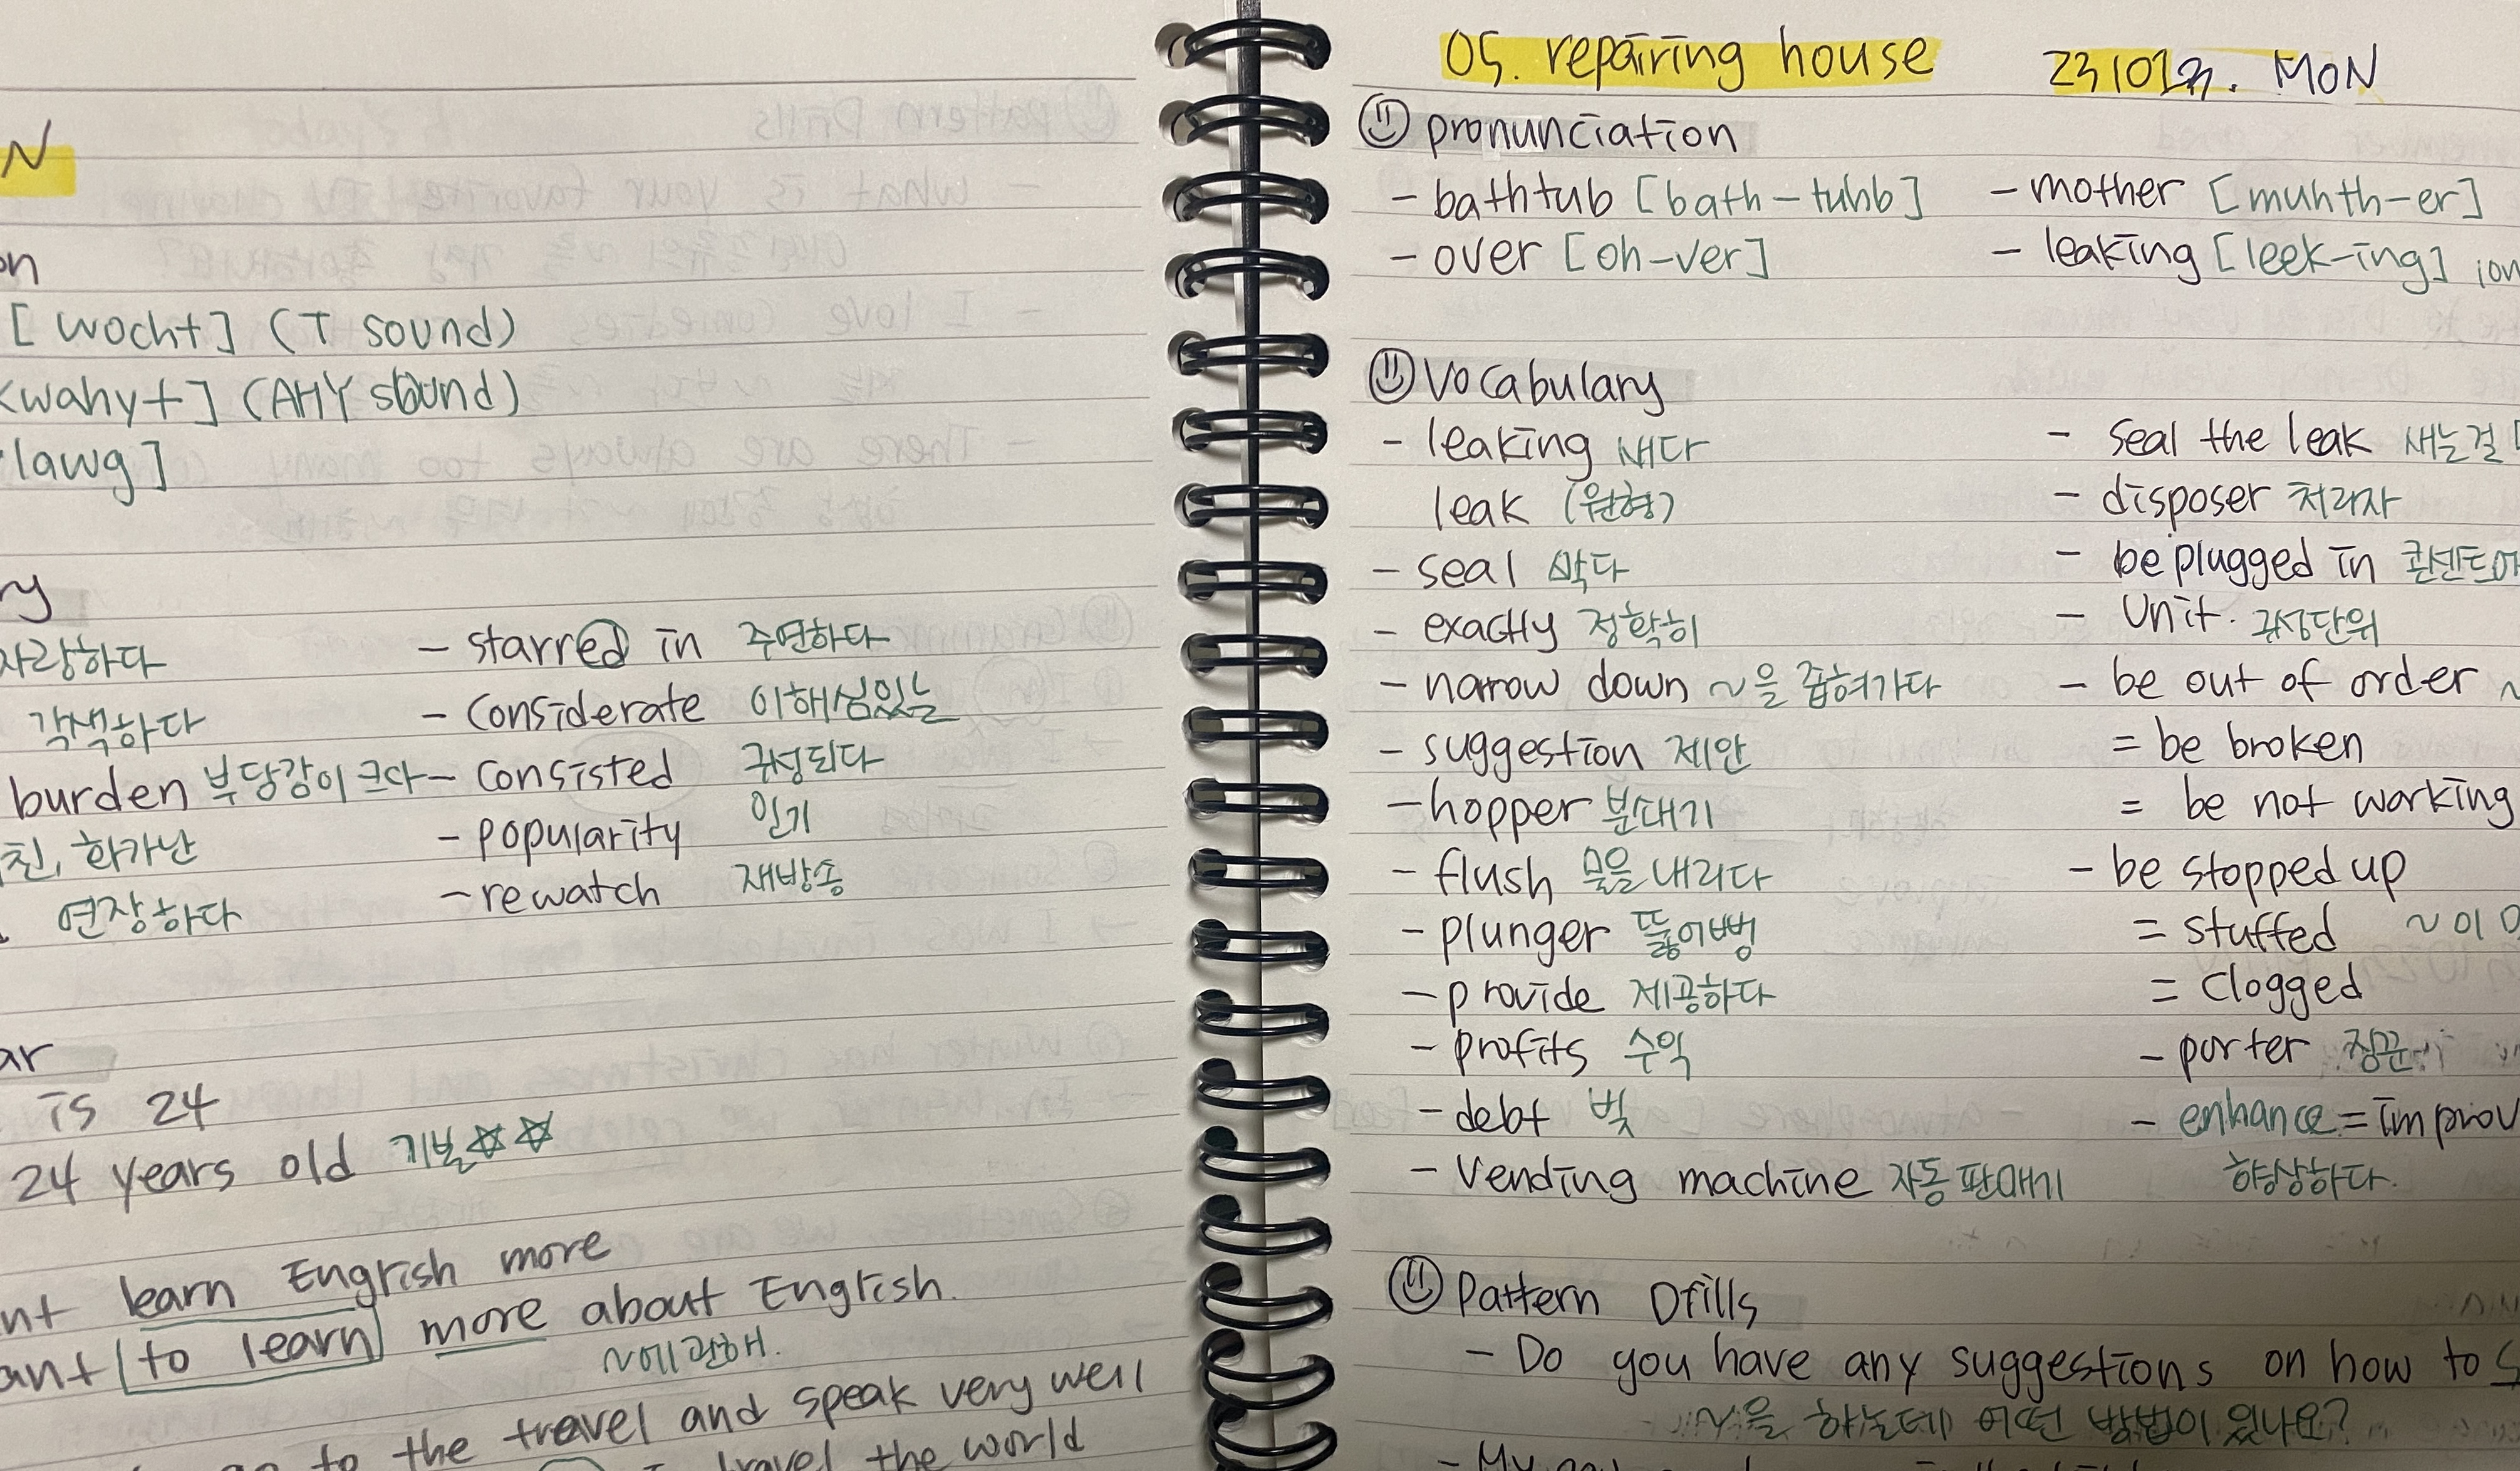 N
on
[wocht] (T sound)
<wahyt] (AHY sound)
lawg]
ry
사랑하다 - starred in 주연하다
각색하다 - considerate 이해심있는
burden 부담감이 크다 - consisted 구성되다
친, 화가난 - popularity 인기
연장하다 - rewatch 재방송
ar
is 24
24 years old 기본☆☆
nt learn English more
ant to learn more about English.
~에 관해.
to the travel and speak very well
travel the world
05. repairing house MON
pronunciation
- bathtub [bath-tuhb] - mother [muhth-er]
- over [oh-ver] - leaking [leek-ing]
Vocabulary
- leaking 새다 - seal the leak 새는걸
leak (원형) - disposer 처리자
- seal 막다 - be plugged in 콘센트에
- exactly 정확히 - unit. 구성단위
- narrow down ~을 좁혀가다 - be out of order ~
- suggestion 제안 = be broken
- hopper 분대기 = be not working
- flush 물을 내리다 - be stopped up
- plunger 뚫어뻥 = stuffed ~이
- provide 제공하다 = clogged
- profits 수익 - porter 짐꾼.
- debt 빚 - enhance = improv
- vending machine 자동 판매기 향상하다.
Pattern Drills
- Do you have any suggestions on how to
~을 하는데 어떤 방법이 있나요?
- My